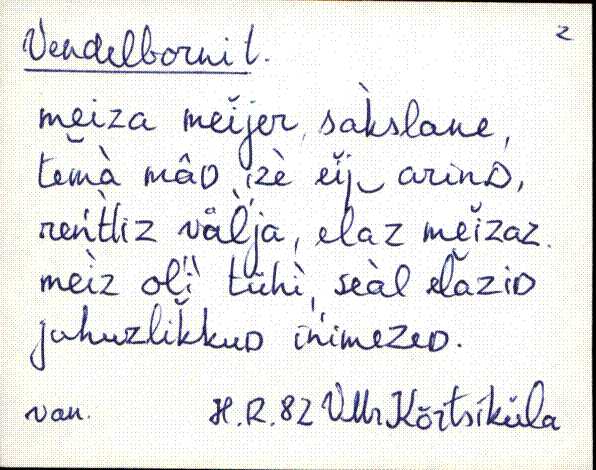 2
Vendelborni t.
meiza meĭjer, sàkslane,
temà mâᴅ, izè eĭj arinᴅ,
reńtliz vàlja, elaz meĭzaz.
mèiz oĺi tühì, seàl elazìᴅ
juhuzlikkuᴅ inimezeᴅ.
van. H.R. 82 VMr Kõrtsiküla